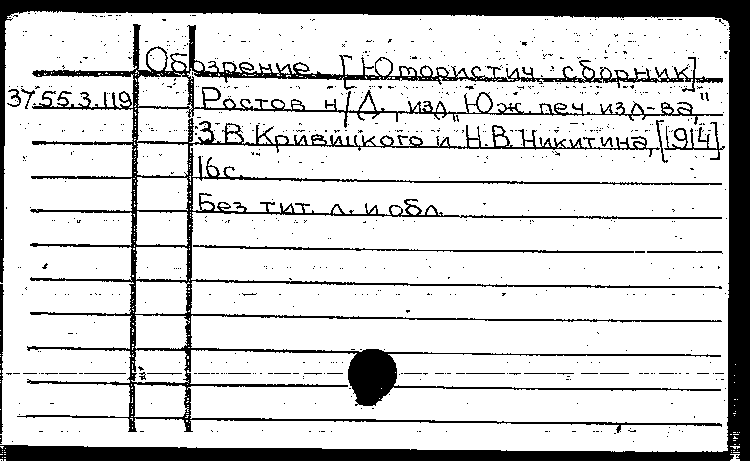 Обозрение. [Юмористич. сборник].
37.55.3.119 Ростов н/Д., изд. "Юж. печ. изд-ва,"
З.В. Кривицкого и Н.В. Никитина, [1914].
16с.
Без тит. л. и обл.